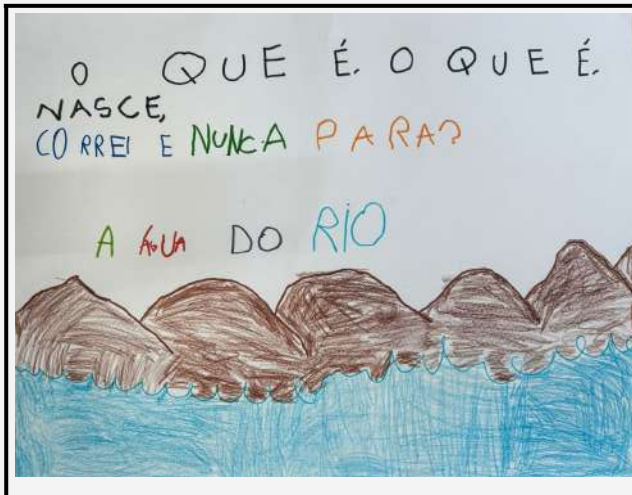 O QUE É. O QUE É.
NASCE,
CORREI E NUNCA PARA?
A ÁGUA DO RIO